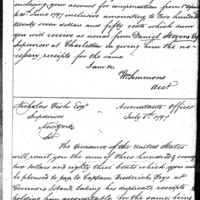 inclosing your account for compensation from
to 30 June 1797 inclusive amounting to two hundred
seven dollars and fifty cents which sum
you will receive as usual from Daniel Stevens Esqr
Supervisor at Charleston in giving him the ne-
cessary receipts for the same
I am sir
Wm Simmons
acct
Nicholas Fish Esqr
Supervisor
New York
Sir
Accountants Office
July 5th 1797
The Treasurer of the United States
will remit you the sum of three hundred &
two dollars and eighty three cents which you
be pleased to pay to Captain Frederick Frye at
Governors Island taking his duplicate receipts
holding him accountable for the same, being